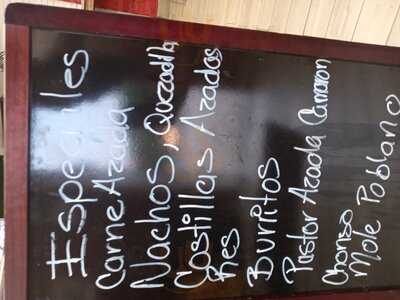 Especiales
Carne Azada
Nachos, Quzadilla
Costillas Azadas
Res
Burritos
Pastor Azada Camaron
Chorizo
Mole Poblano